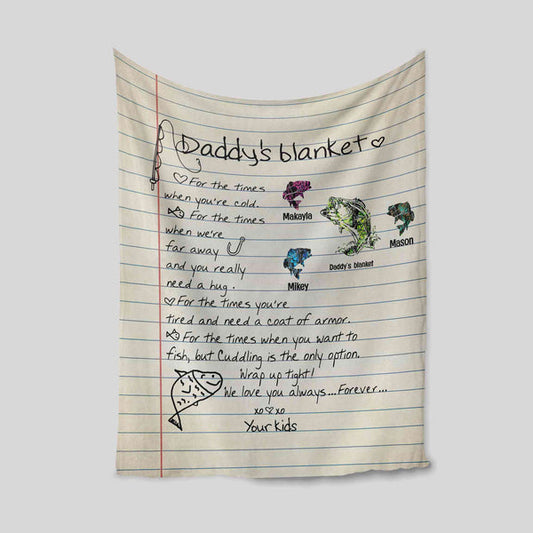 Daddy's blanket
For the times
when you're cold.
For the times
when we're
far away
and you really
need a hug.
Makayla
Mason
Daddy's blanket
Mikey
For the times you're
tired and need a coat of armor.
For the times when you want to
fish, but Cuddling is the only option.
Wrap up tight!
We love you always...Forever...
xo♡xo
Your kids